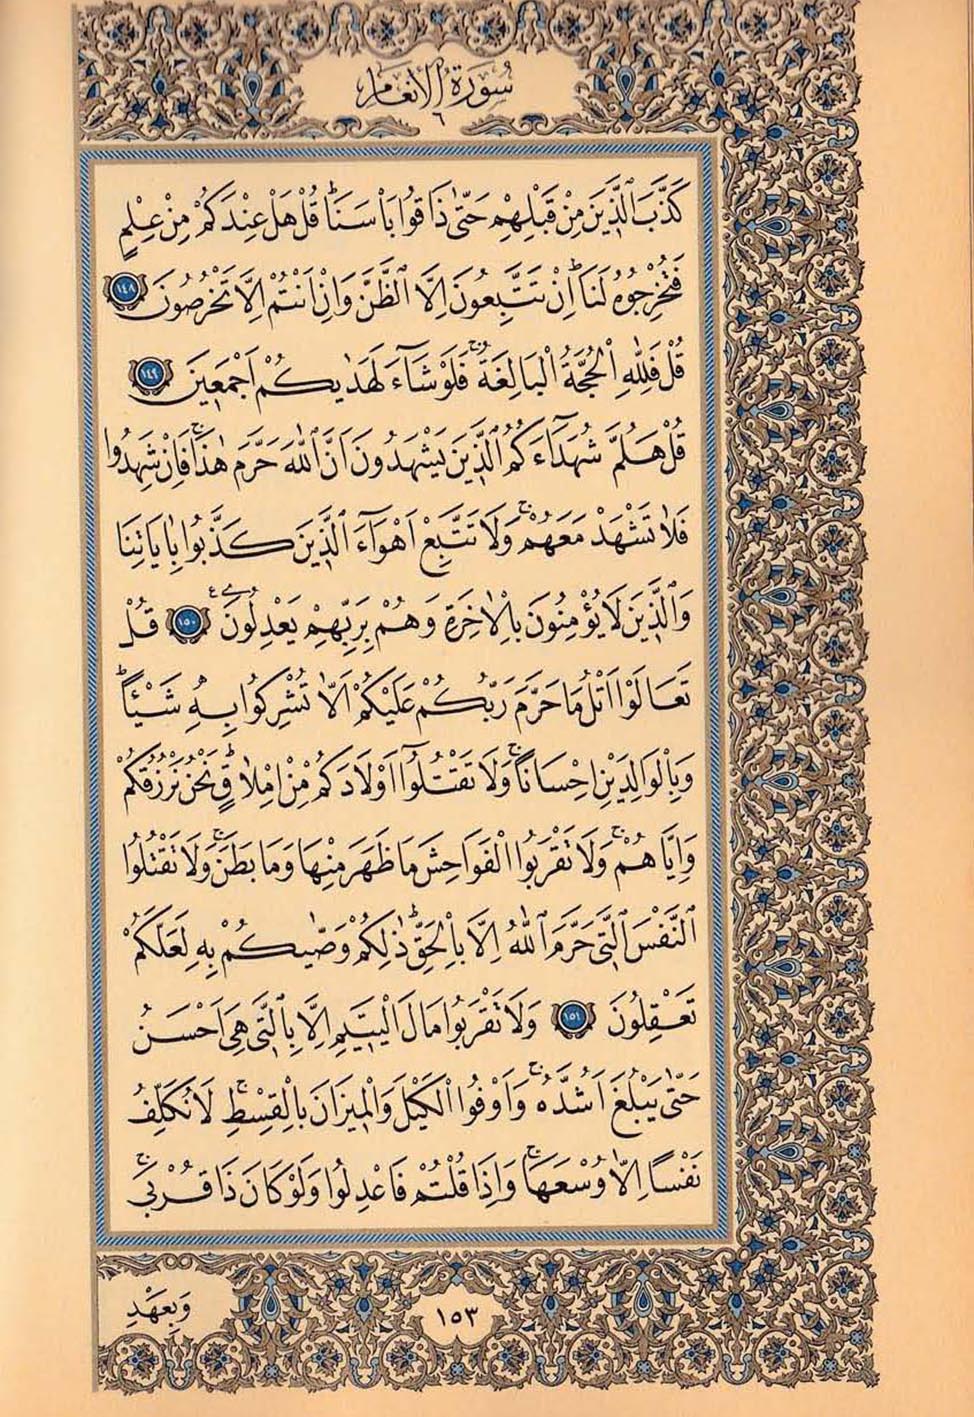 سُورَةُ الْاَنْعَامِ
٦
كَذَّبَ الَّذٖينَ مِنْ قَبْلِهِمْ حَتّٰى ذَاقُوا بَأْسَنَاؕ قُلْ هَلْ عِنْدَكُمْ مِنْ عِلْمٍ
فَتُخْرِجُوهُ لَنَاؕ اِنْ تَتَّبِعُونَ اِلَّا الظَّنَّ وَاِنْ اَنْتُمْ اِلَّا تَخْرُصُونَ ١٤٨
قُلْ فَلِلّٰهِ الْحُجَّةُ الْبَالِغَةُۚ فَلَوْ شَٓاءَ لَهَدٰيكُمْ اَجْمَعٖينَ ١٤٩
قُلْ هَلُمَّ شُهَدَٓاءَكُمُ الَّذٖينَ يَشْهَدُونَ اَنَّ اللّٰهَ حَرَّمَ هٰذَاۚ فَاِنْ شَهِدُوا
فَلَا تَشْهَدْ مَعَهُمْۚ وَلَا تَتَّبِعْ اَهْوَٓاءَ الَّذٖينَ كَذَّبُوا بِاٰيَاتِنَا
وَالَّذٖينَ لَا يُؤْمِنُونَ بِالْاٰخِرَةِ وَهُمْ بِرَبِّهِمْ يَعْدِلُونَ ع ١٥٠ قُلْ
تَعَالَوْا اَتْلُ مَا حَرَّمَ رَبُّكُمْ عَلَيْكُمْ اَلَّا تُشْرِكُوا بِهٖ شَيْـًٔاؕ
وَبِالْوَالِدَيْنِ اِحْسَانًاۚ وَلَا تَقْتُلُٓوا اَوْلَادَكُمْ مِنْ اِمْلَاقٍؕ نَحْنُ نَرْزُقُكُمْ
وَاِيَّاهُمْۚ وَلَا تَقْرَبُوا الْفَوَاحِشَ مَا ظَهَرَ مِنْهَا وَمَا بَطَنَۚ وَلَا تَقْتُلُوا
النَّفْسَ الَّتٖى حَرَّمَ اللّٰهُ اِلَّا بِالْحَقِّؕ ذٰلِكُمْ وَصّٰيكُمْ بِهٖ لَعَلَّكُمْ
تَعْقِلُونَ ١٥١ وَلَا تَقْرَبُوا مَالَ الْيَتٖيمِ اِلَّا بِالَّتٖى هِىَ اَحْسَنُ
حَتّٰى يَبْلُغَ اَشُدَّهُۚ وَاَوْفُوا الْكَيْلَ وَالْمٖيزَانَ بِالْقِسْطِۚ لَا نُكَلِّفُ
نَفْسًا اِلَّا وُسْعَهَاۚ وَاِذَا قُلْتُمْ فَاعْدِلُوا وَلَوْ كَانَ ذَا قُرْبٰىۚ
وَبِعَهْدِ
١٥٣